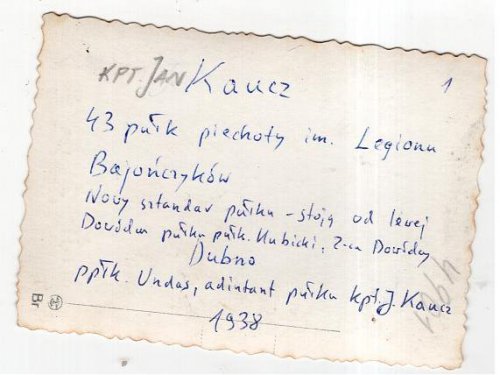 KPT. JAN Kaucz
1
43 pułk piechoty im. Legionu
Bajończyków
Nowy sztandar pułku - stoją od lewej
Dowódca pułku płk. Kubicki, Z-ca Dowódcy
Dubno
ppłk. Undas, adiutant pułku kpt. J. Kaucz
1938
Br